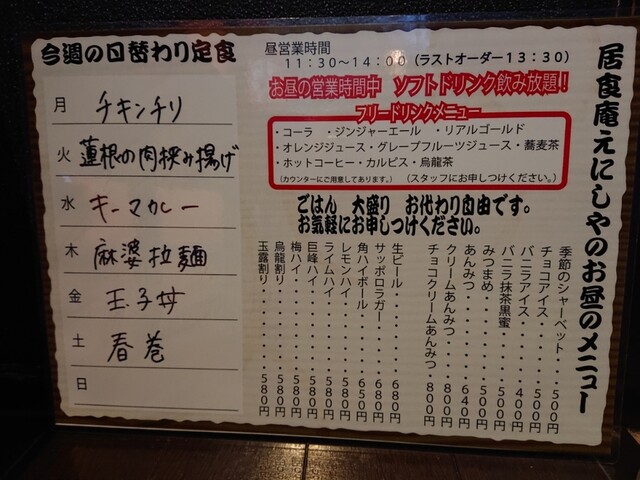 居食庵えにしやのお昼のメニュー
今週の日替わり定食
月 チキンチリ
火 蓮根の肉挟み揚げ
水 キーマカレー
木 麻婆拉麺
金 玉子丼
土 春巻
日
昼営業時間
11:30～14:00（ラストオーダー13:30）
お昼の営業時間中 ソフトドリンク飲み放題！
フリードリンクメニュー
・コーラ ・ジンジャーエール ・リアルゴールド
・オレンジジュース・グレープフルーツジュース・蕎麦茶
・ホットコーヒー・カルピス・烏龍茶
（カウンターにご用意してあります。）（スタッフにお申しつけください。）
ごはん 大盛り お代わり自由です。
お気軽にお申しつけください。
季節のシャーベット・・500円
チョコアイス・・・・・500円
バニラアイス・・・・・400円
バニラ抹茶黒蜜・・・・500円
みつまめ・・・・・・・500円
あんみつ・・・・・・・640円
クリームあんみつ・・・800円
チョコクリームあんみつ・800円
生ビール・・・・・・・680円
サッポロラガー・・・・680円
角ハイボール・・・・・650円
レモンハイ・・・・・・580円
ライムハイ・・・・・・580円
巨峰ハイ・・・・・・・580円
梅ハイ・・・・・・・・580円
烏龍割り・・・・・・・580円
玉露割り・・・・・・・580円